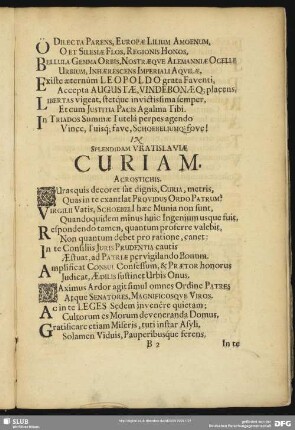 O DILECTA PARENS, EUROPÆ LILIUM AMOENUM,
O ET SILESIÆ FLOS, REGIONIS HONOS,
BELLULA GEMMA ORBIS, NOSTRÆQVE ALEMANNIÆ OCELLE
URBIUM, INHÆRESCENS IMPERIALI AQVILÆ,
Existe æternùm LEOPOLDO grata Faventi,
Accepta AUGUSTÆ, VINDEBONÆQ;
LIBERTAS vigeat, stetque invictissima semper,
Et cum JUSTITIA PACIS Agalma Tibi.
In TRIADOS Summæ Tutelâ perpes agendo
Vince, Tuisq; fave, SCHOEBELIUMQ; fove!
IX
SPLENDIDAM VRATISLAVIÆ
CURIAM.
ACROSTICHIS.
CUra equis decoret sat dignis, CURIA, metris,
Quas in te exantlat PROVIDUS ORDO PATRUM?
VIRGILII Vatis, SCHOEBELI hæc Munia non sunt,
Quandoquidem minus huic Ingenium usque fuit,
Respondendo tamen, quantum proferre valebit,
Non quantum debet pro ratione, canet:
In te Consiliis JURIS PRUDENTIA cautis
Æstuat, ad PATRIÆ pervigilando Bonum.
AMplificat CONSUL Confessum, & PRÆTOR honorus
Judicat, ÆRRIIS sustinet Urbis Onus.
MAximus Ardor agit simul omnes Ordine PATRES
Atque SENATORES, MAGNIFICOSQVE VIROS.
Ac in te LEGES Sedem invenêre quietam;
Cultorum es Morum deveneranda Domus,
Gratificare etiam Miseris, tuti instar Asyli,
Solamen Viduis, Pauperibusque ferens,
B 2
In te
SLUB
DFG